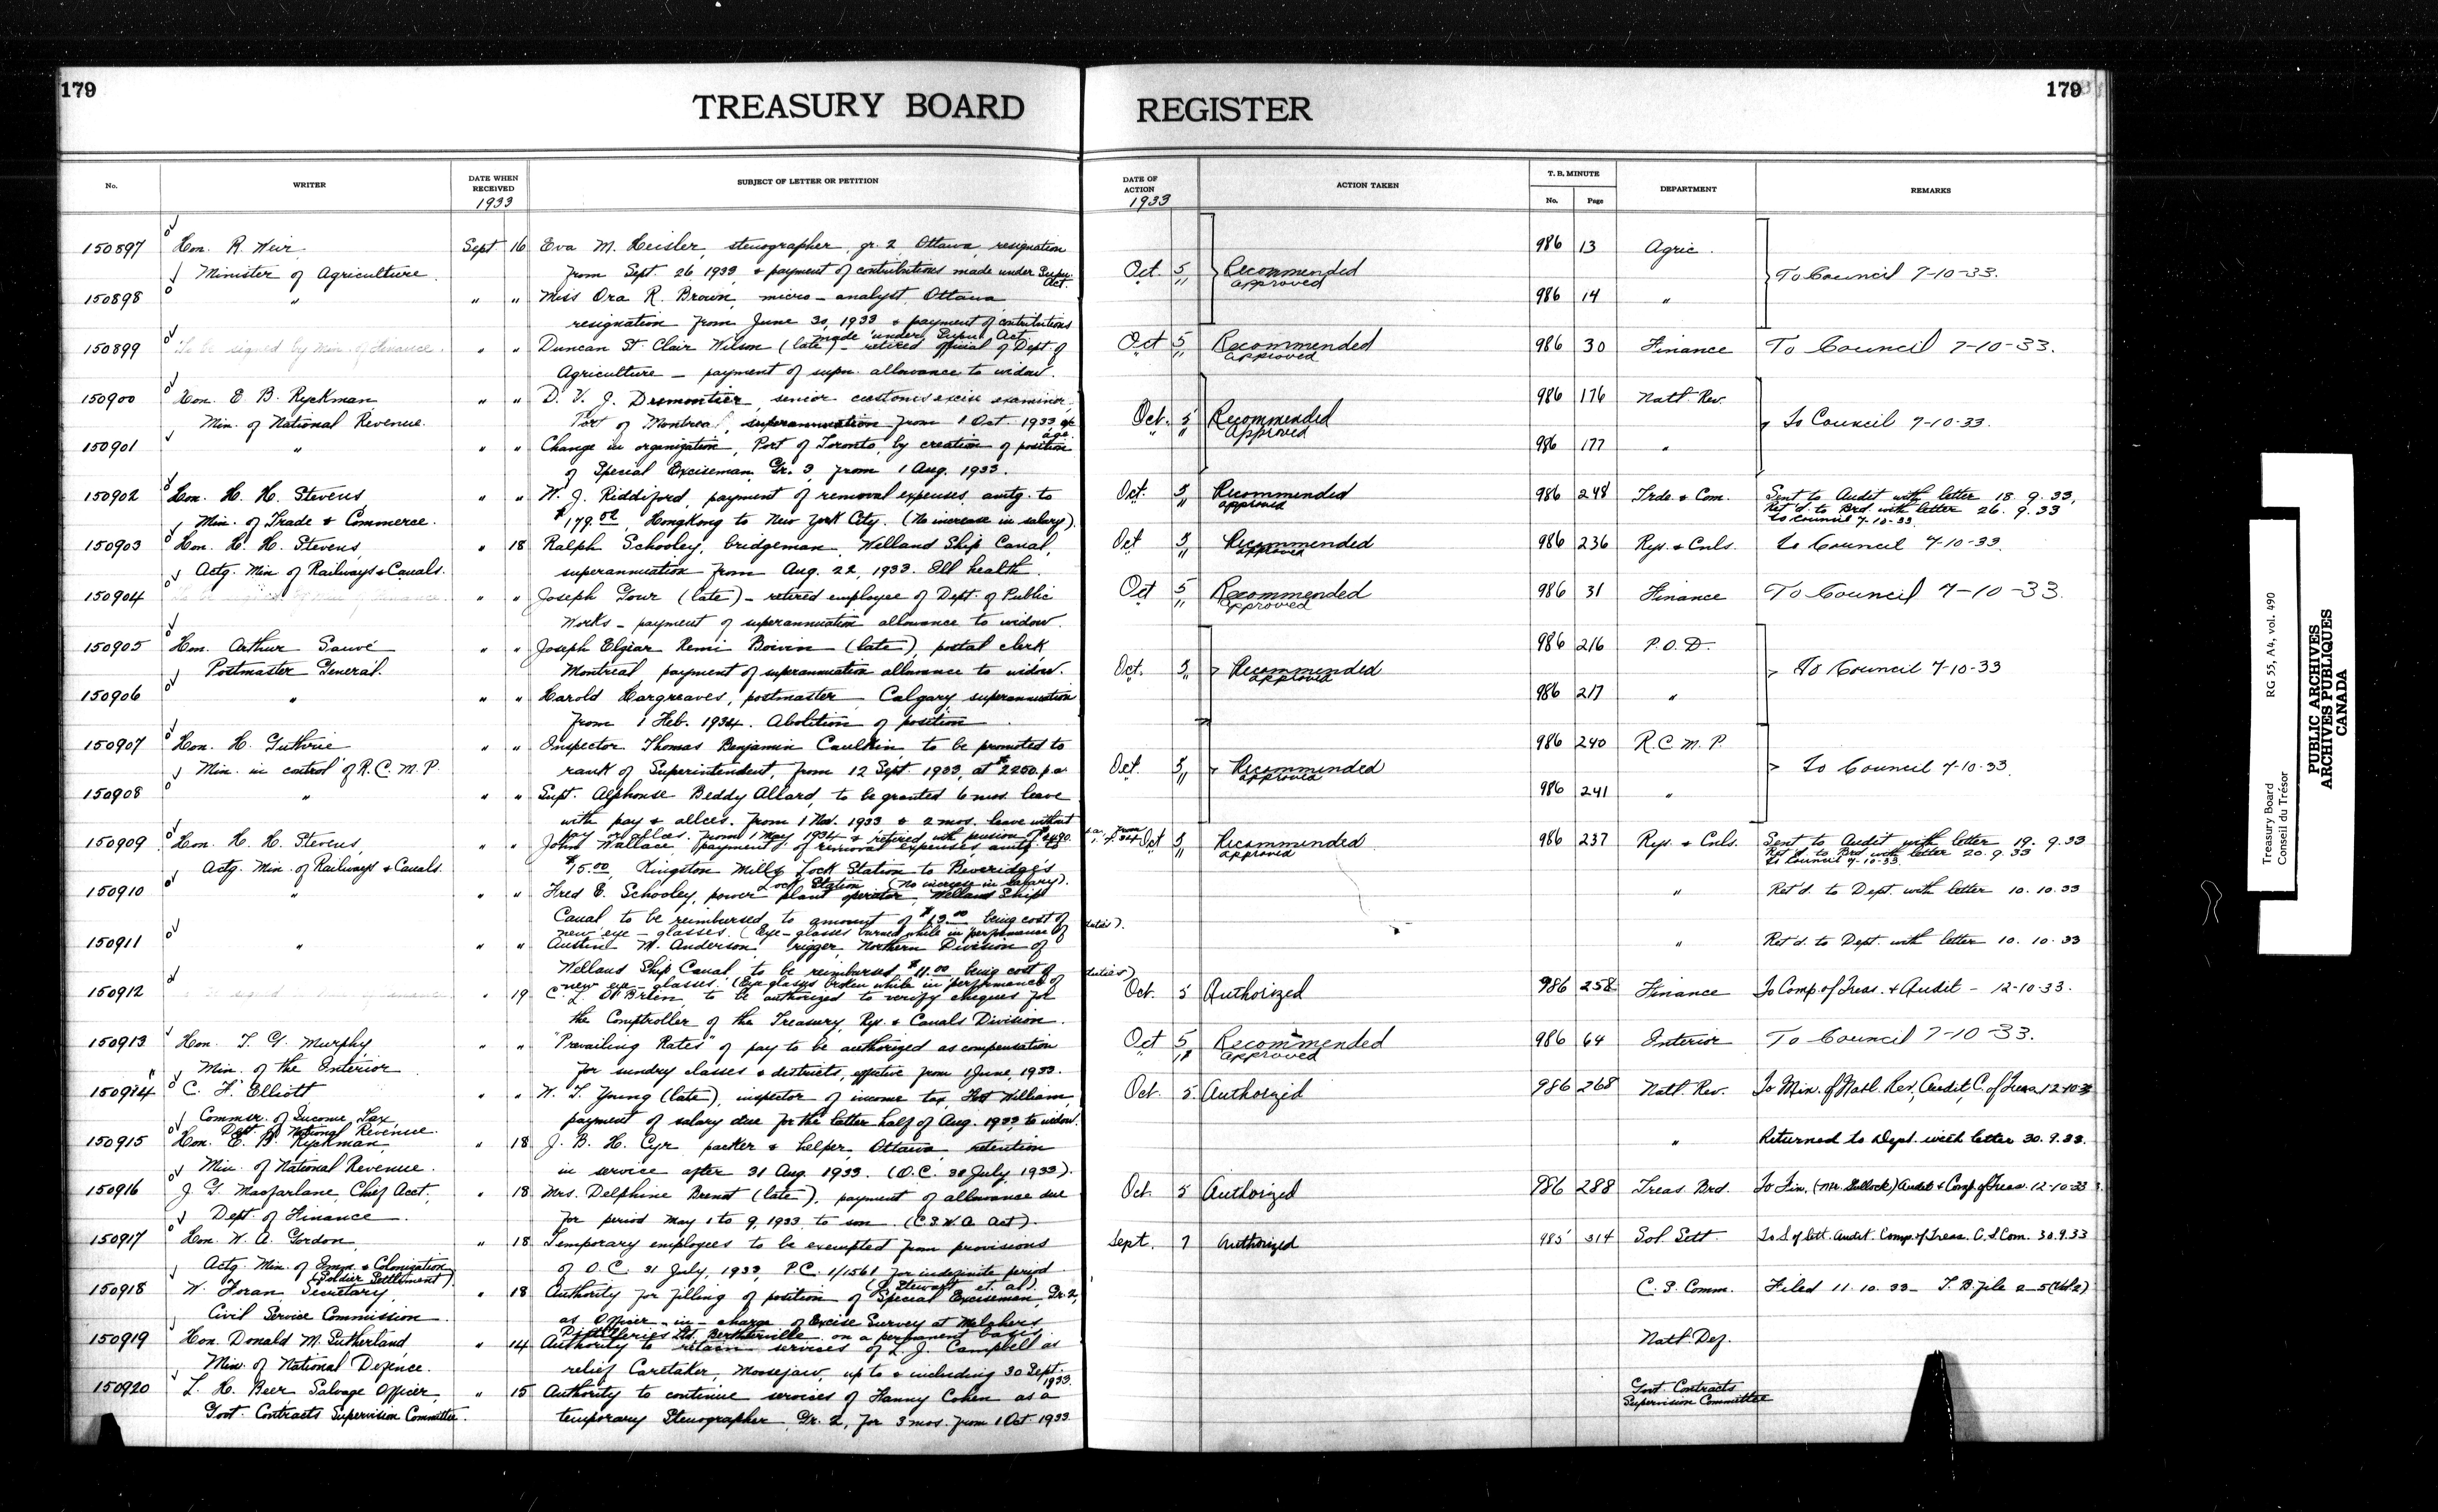 179
TREASURY BOARD REGISTER
179
No. WRITER DATE WHEN RECEIVED 1933 SUBJECT OF LETTER OR PETITION DATE OF ACTION 1933 ACTION TAKEN T. B. MINUTE No. Page DEPARTMENT REMARKS
150897 Hon. R. Weir, Sept 16 Eva M. Heisler, stenographer, gr. 2 Ottawa, resignation 986 13 Agric.
Minister of Agriculture. from Sept. 26 1933, & payment of contributions made under Supn. Act. Oct. 5 Recommended To Council 7-10-33.
" 11 approved
150898 " " " Miss Ora R. Brown, micro-analyst, Ottawa 986 14 "
resignation from June 30, 1933 & payment of contributions
made under Supn. Act
150899 To be signed by Min. of Finance. " " Duncan St. Clair Wilson (late) - retired official of Dept of Oct 5 Recommended 986 30 Finance To Council 7-10-33.
" 11 approved
Agriculture - payment of supn. allowance to widow.
150900 Hon. E. B. Ryckman " " D. V. J. Desmontier, senior customs excise examiner, 986 176 Natl. Rev.
Min. of National Revenue. Port of Montreal, superannuation from 1 Oct. 1933, age. Oct. 5 Recommended To Council 7-10-33.
approved
150901 " " " Change in organization, Port of Toronto, by creation of position 986 177 "
of Special Exciseman, Gr. 3, from 1 Aug. 1933.
150902 Hon. H. H. Stevens, " " W. J. Riddiford, payment of removal expenses amtg. to Oct. 5 Recommended 986 248 Trde. & Com. Sent to Audit with letter 18. 9. 33,
" 11 approved Ret'd. to Brd. with letter 26. 9. 33
Min. of Trade & Commerce. $179.02, HongKong to New York City. (No increase in salary). To Council 7-10-33.
150903 Hon. H. H. Stevens, " 18 Ralph Schooley, bridgeman, Welland Ship Canal, Oct 5 Recommended 986 236 Rys. & Cnls. To Council 7-10-33.
" 11 approved
Actg. Min. of Railways & Canals. superannuation from Aug. 22, 1933. Ill health.
150904 " " Joseph Gour (late) - retired employee of Dept. of Public Oct 5 Recommended 986 31 Finance To Council 7-10-33.
11 approved
Works - payment of superannuation allowance to widow.
150905 Hon. Arthur Sauvé " " Joseph Elzear Remi Boivin (late), postal clerk, 986 216 P.O.D.
Postmaster General. Montreal, payment of superannuation allowance to widow. Oct. 5 Recommended To Council 7-10-33
" 11 approved
150906 " " " Harold Hargreaves, postmaster, Calgary, superannuation 986 217 "
from 1 Feb. 1934. Abolition of position
150907 Hon. H. Guthrie " " Inspector Thomas Benjamin Caulkin, to be promoted to 986 240 R.C.M.P.
Min. in control of R.C.M.P. rank of Superintendent, from 12 Sept. 1933, at $2250. p.a. Oct. 5 Recommended To Council 7-10-33.
" 11 approved
150908 " " " Supt. Alphonse Beddy Allard, to be granted 6 mos. leave 986 241 "
with pay & allces. from 1 Nov. 1933 & 2 mos. leave without
pay or allces. from 1 May 1934 & retired with pension of
150909 Hon. H. H. Stevens, " " John Wallace, payment of removal expenses amtg. to Oct 5 Recommended 986 237 Rys. & Cnls. Sent to Audit with letter 19. 9. 33
11 approved Ret'd. to Brd with letter 20. 9. 33
Actg. Min. of Railways & Canals. $15.00, Kingston Mills Lock Station to Beveridge's To Council 7-10-33.
Lock Station. (No increase in salary).
150910 " " " Fred E. Schooley, power plant operator, Welland Ship " Ret'd. to Dept. with letter 10. 10. 33
Canal to be reimbursed to amount of $13.00 being cost of
new eye-glasses. (Eye-glasses burned while in performance of duties).
150911 " " " Austin M. Anderson, rigger, Northern Division of " Ret'd. to Dept. with letter 10. 10. 33
Welland Ship Canal, to be reimbursed $11.00 being cost of
new eye-glasses. (Eye glasses broken while in performance of duties)
150912 " 19 C. L. O'Brien, to be authorized to verify cheques for Oct. 5 Authorized 986 258 Finance To Comp. of Treas. & Audit - 12-10-33.
the Comptroller of the Treasury, Rys. & Canals Division.
150913 Hon. T. G. Murphy, " " "Prevailing Rates" of pay to be authorized as compensation Oct 5 Recommended 986 64 Interior To Council 7-10-33.
11 approved
Min. of the Interior for sundry classes & districts, effective from 1 June, 1933.
150914 C. F. Elliott " " W. T. Young (late), inspector of income tax, Fort William, Oct. 5 Authorized 986 268 Natl. Rev. To Min. of Natl. Rev., Audit, C. of Treas. 12-10-33
Commr. of Income Tax, payment of salary due for the latter half of Aug. 1933, to widow.
Dept. of National Revenue.
150915 Hon. E. B. Ryckman, " 18 J. B. H. Cyr, packer & helper, Ottawa, retention " Returned to Dept. with letter 30. 9. 33.
Min. of National Revenue. in service after 31 Aug. 1933. (O.C. 31 July, 1933).
150916 J. G. Macfarlane, Chief Acct, " 18 Mrs. Delphine Benoit (late), payment of allowance due Oct. 5 Authorized 986 288 Treas Brd. To Fin. (Mr. Bullock) Audit & Comp. of Treas. 12-10-33
Dept. of Finance. for period May 1 to 9, 1933, to son. (C.S.W.A. Act).
150917 Hon. W. A. Gordon, " 18 Temporary employees to be exempted from provisions Sept. 7 Authorized 985 314 Sol. Sett. To S. of Sett. Audit. Comp. of Treas. C.S. Com. 30.9.33
Actg. Min. of Immn. & Colonization of O.C. 31 July, 1933, P.C. 1/1561 for indefinite period
(Soldier Settlement). (Stewart et. al).
150918 W. Foran, Secretary, " 18 Authority for filling of position of Special Exciseman, Gr. 2, C.S. Comm. Filed 11. 10. 33 - T.B. file 2-5 (Vol. 2)
Civil Service Commission as Officer-in-charge of Excise Survey at Melchers
Distilleries Ltd. Berthierville on a permanent basis.
150919 Hon. Donald M. Sutherland, " 14 Authority to retain services of L. J. Campbell as Natl. Def.
Min. of National Defence. relief Caretaker, Moosejaw, up to & including 30 Sept. 1933.
150920 L. H. Beer Salvage Officer, " 15 Authority to continue services of Fanny Cohen as a Govt. Contracts
Govt. Contracts Supervision Committee. temporary Stenographer, Gr. 2, for 3 mos. from 1 Oct. 1933 Supervision Committee
Treasury Board RG 55, A4, vol. 490
Conseil du Trésor
PUBLIC ARCHIVES
ARCHIVES PUBLIQUES
CANADA